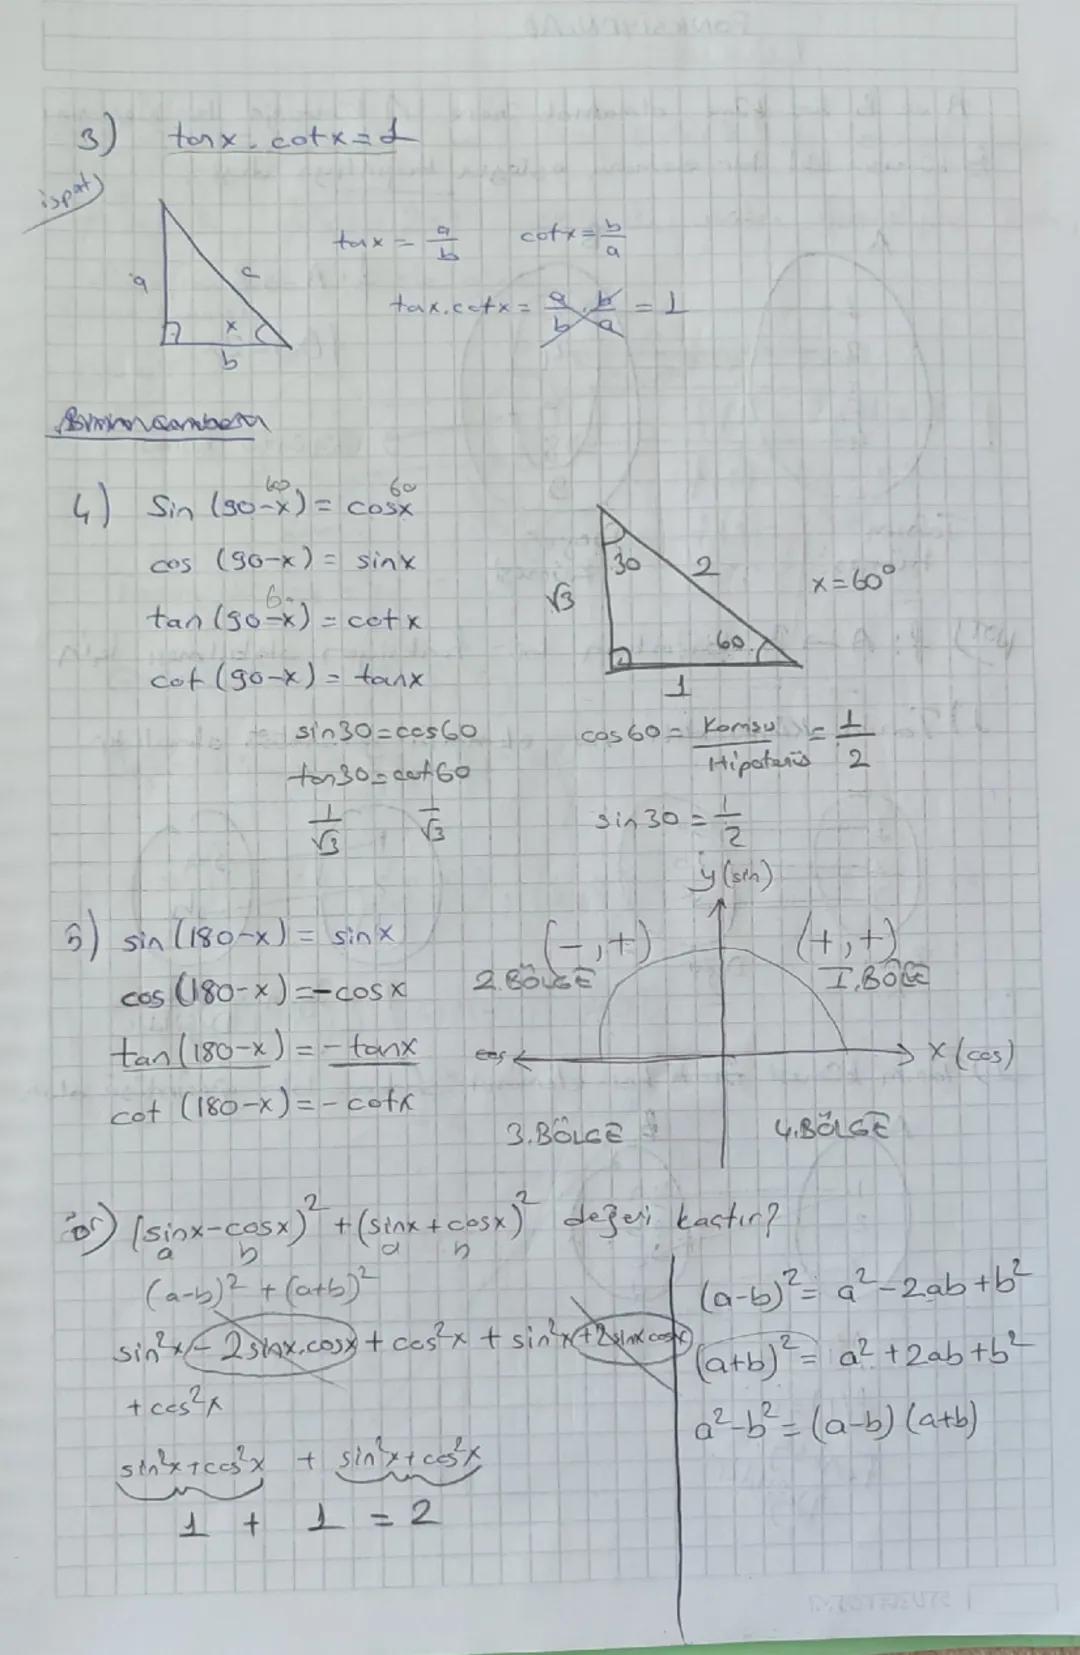 3) tanx . cotx = 1
ispat)
a
c
x
b
tanx = a/b cotx = b/a
tanx.cotx = a/b . b/a = 1
4) Sin (90-x) = cosx
60 60
cos (90-x) = sinx
tan (90-x) = cotx
60
cot (90-x) = tanx
30
2
√3
60
1
x = 60°
sin30 = cos60
tan30 = cot60
1/√3 1/√3
cos60 = Komşu/Hipotenüs = 1/2
sin30 = 1/2
y (sin)
5) sin (180-x) = sinx
cos (180-x) = -cosx
tan (180-x) = -tanx
cot (180-x) = -cotx
(-,+) (+,+)
2.BÖLGE I.BÖLGE
cos x (cos)
3.BÖLGE 4.BÖLGE
ör) (sinx-cosx)² + (sinx+cosx)² değeri kaçtır?
a b a b
(a-b)² + (a+b)²
sin²x - 2sinx.cosx + cos²x + sin²x + 2sinxcosx
+ cos²x
sin²x+cos²x + sin²x+cos²x
1 + 1 = 2
(a-b)² = a² - 2ab + b²
(a+b)² = a² + 2ab + b²
a² - b² = (a-b) (a+b)